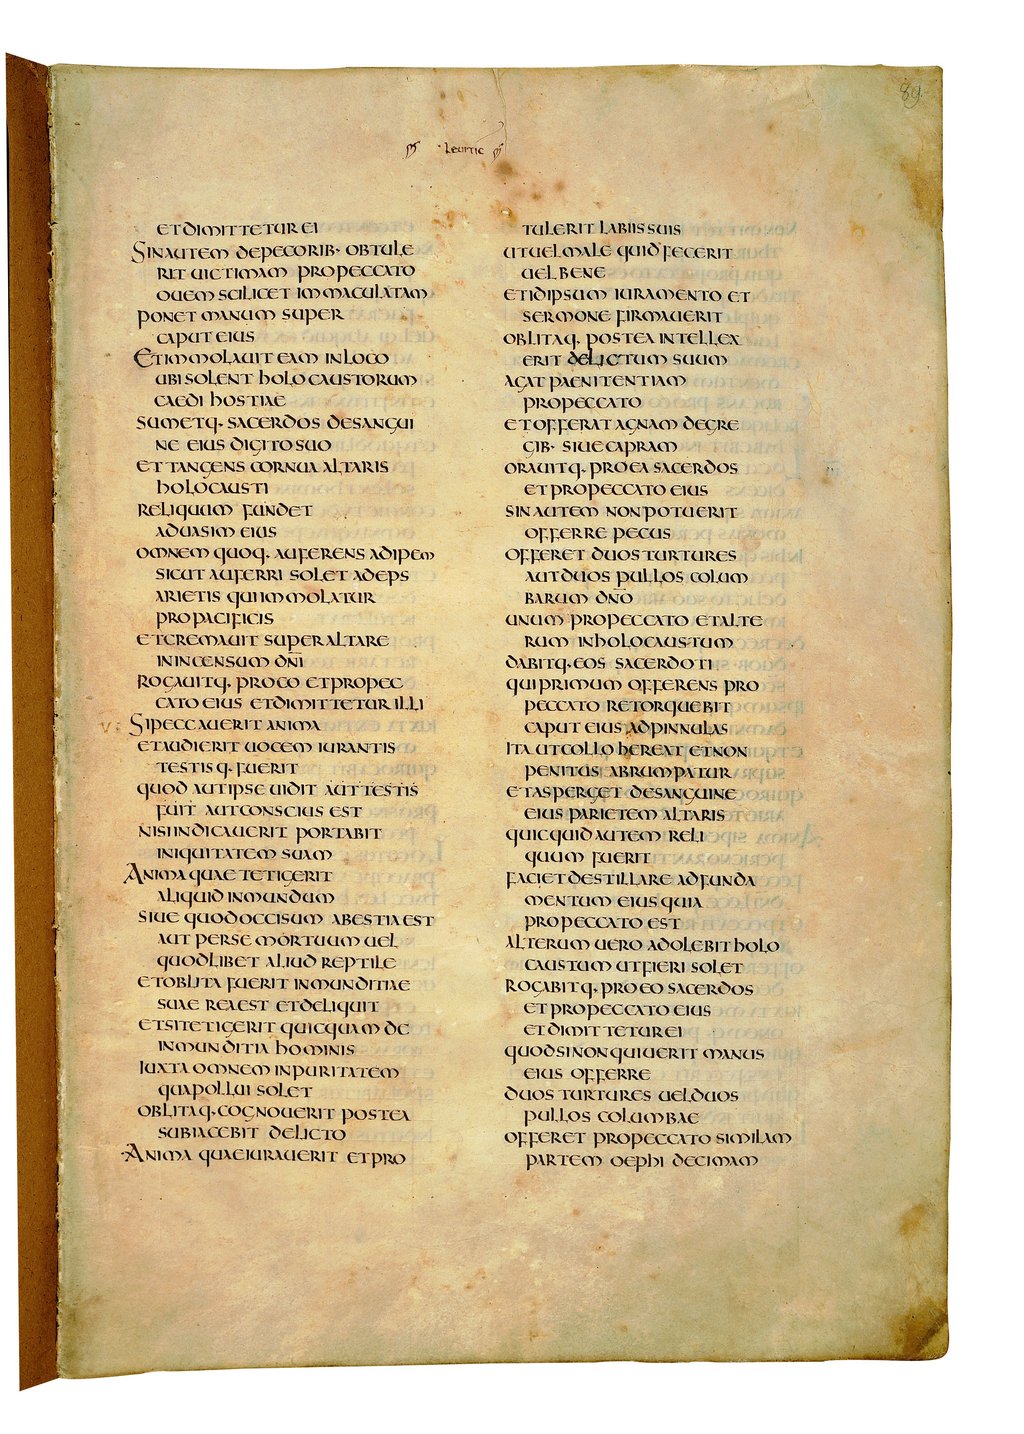 89
Leuitic
ET DIMITTETUR EI
SIN AUTEM DE PECORIB· OBTULE
RIT UICTIMAM PRO PECCATO
OUEM SCILICET IMMACULATAM
PONET MANUM SUPER
CAPUT EIUS
ET IMMOLAUIT EAM IN LOCO
UBI SOLENT HOLOCAUSTORUM
CAEDI HOSTIAE
SUMETQ· SACERDOS DE SANGUI
NE EIUS DIGITO SUO
ET TANGENS CORNUA ALTARIS
HOLOCAUSTI
RELIQUUM FUNDET
AD UASIM EIUS
OMNEM QUOQ· AUFERENS ADIPEM
SICUT AUFERRI SOLET ADEPS
ARIETIS QUI IMMOLATUR
PRO PACIFICIS
ET CREMAUIT SUPER ALTARE
IN INCENSUM DNI
ROGAUITQ· PRO EO ET PRO PEC
CATO EIUS ET DIMITTETUR ILLI
V: SI PECCAUERIT ANIMA
ET AUDIERIT UOCEM IURANTIS
TESTISQ· FUERIT
QUOD AUT IPSE UIDIT AUT TESTIS
FUIT AUT CONSCIUS EST
NISI INDICAUERIT PORTABIT
INIQUITATEM SUAM
ANIMA QUAE TETIGERIT
ALIQUID INMUNDUM
SIUE QUOD OCCISUM A BESTIA EST
AUT PER SE MORTUUM UEL
QUODLIBET ALIUD REPTILE
ET OBLITA FUERIT INMUNDITIAE
SUAE REA EST ET DELIQUIT
ET SI TETIGERIT QUICQUAM DE
INMUNDITIA HOMINIS
IUXTA OMNEM INPURITATEM
QUA POLLUI SOLET
OBLITAQ· COGNOUERIT POSTEA
SUBIACEBIT DELICTO
·ANIMA QUAE IURAUERIT ET PRO
TULERIT LABIIS SUIS
UT UEL MALE QUID FECERIT
UEL BENE
ET ID IPSUM IURAMENTO ET
SERMONE FIRMAUERIT
OBLITAQ· POSTEA INTELLEX
ERIT DELICTUM SUUM
AGAT PAENITENTIAM
PRO PECCATO
ET OFFERAT AGNAM DE GRE
GIB· SIUE CAPRAM
ORAUITQ· PRO EA SACERDOS
ET PRO PECCATO EIUS
SIN AUTEM NON POTUERIT
OFFERRE PECUS
OFFERET DUOS TURTURES
AUT DUOS PULLOS COLUM
BARUM DNO
UNUM PRO PECCATO ET ALTE
RUM IN HOLOCAUSTUM
DABITQ· EOS SACERDOTI
QUI PRIMUM OFFERENS PRO
PECCATO RETORQUEBIT
CAPUT EIUS AD PINNULAS
ITA UT COLLO HEREAT ET NON
PENITUS ABRUMPATUR
ET ASPERGET DE SANGUINE
EIUS PARIETEM ALTARIS
QUICQUID AUTEM RELI
QUUM FUERIT
FACIET DESTILLARE AD FUNDA
MENTUM EIUS QUIA
PRO PECCATO EST
ALTERUM UERO ADOLEBIT HOLO
CAUSTUM UT FIERI SOLET
ROGABITQ· PRO EO SACERDOS
ET PRO PECCATO EIUS
ET DIMITTETUR EI
QUOD SI NON QUIUERIT MANUS
EIUS OFFERRE
DUOS TURTURES UEL DUOS
PULLOS COLUMBAE
OFFERET PRO PECCATO SIMILAM
PARTEM OEPHI DECIMAM